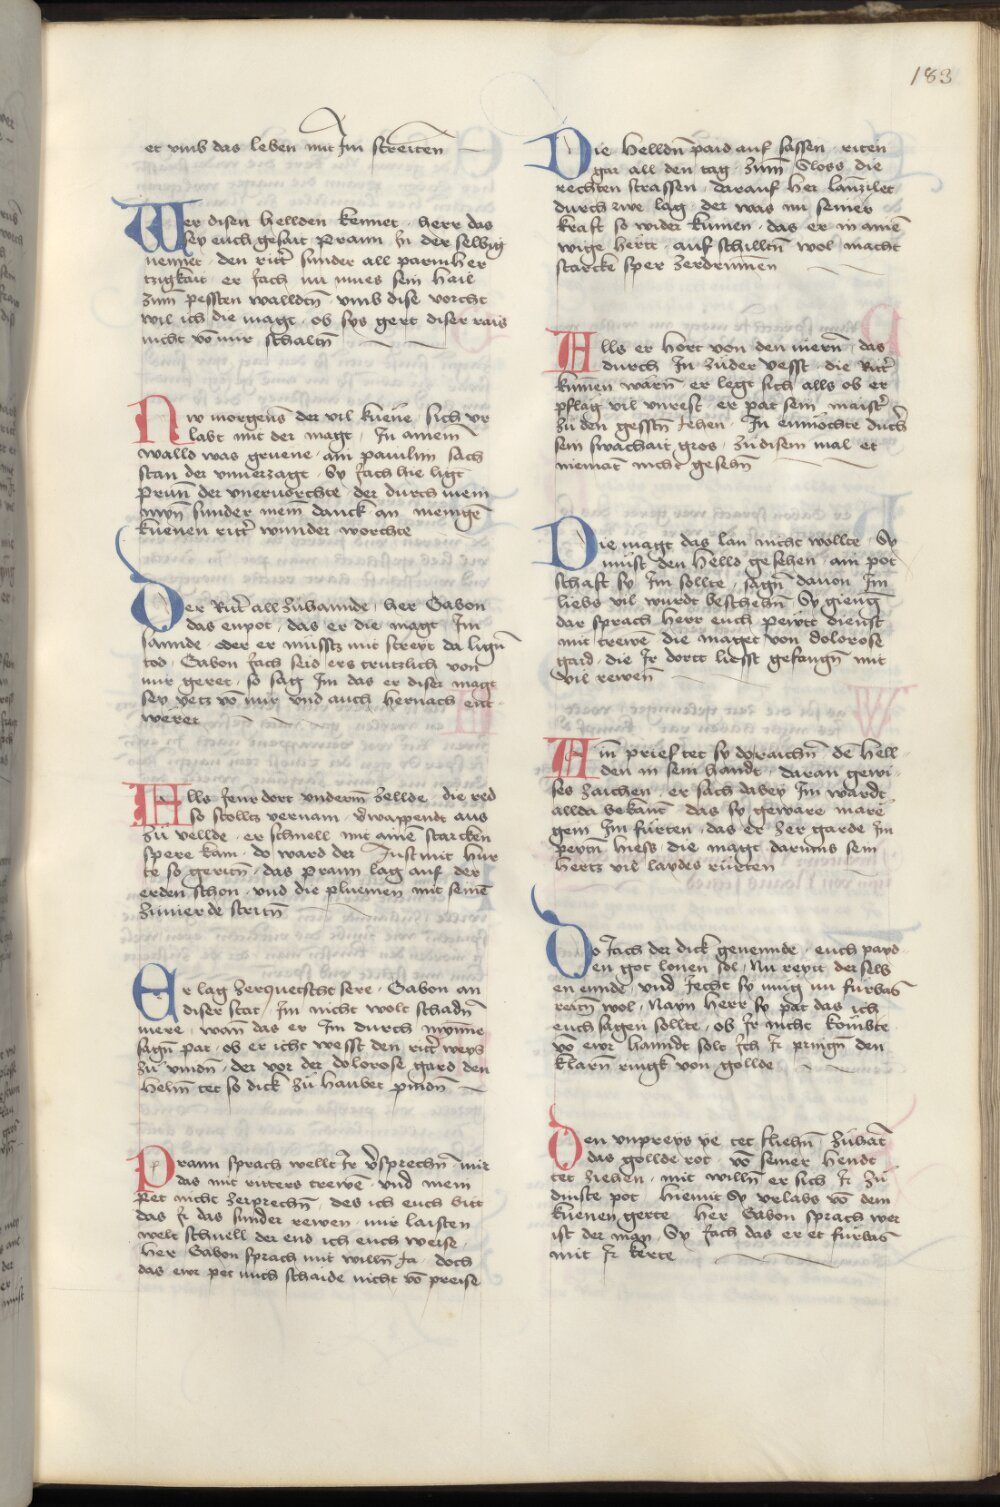 183
er vmb das leben mit Im streiten
Wer disen hellden kennet . herr das
sey euch gesait Prann In der selbig
nennet . den ritt̄ sunder all parmher
tzigkait . er Jach nu mues sein hail
zum pessten walldtn̄ vmb dise vorcht
wil ich die maget . ob sys gert diser rais
nicht vō mir schaltn̄
Nw morgens der vil kuene . sich vr
labt mit der magt . In ainem
walld was gruene . ain pauilun sach
stan der vnuerzagt . Sy Jach hie ligt
Prun̄ der vneruorchte . der durch mein
mȳn sunder mein̄ danck an menigē
kuenen ritt̄ wunder worchte
Der Ritt̄ all zuhannde . her Gabon
das enpot . das er die magt Im
sannde . oder er müsstz mit streyt da lign̄
tod . Gabon Jach seid ers trutzlich von
mir geret . so sag Im das er diser magt
sey yetz vō mir vnd auch hernach ent
weret
Alls Jener dort vnderm zellde . die red
so stolltz vernam . v̄wappendt aus
zu vellde . er schnell mit ainē starcken
spere kam . do ward der Just mit hur
te so geritn̄ . das Prann lag auf der
erden schon . vnd die pluemen mit seinē
zimierde stritn̄
Er lag zerquetscht sere . Gabon an
diser stat . Im nicht wolt schadn̄
mere . wan̄ das er Im durch mynne
sagn̄ pat . ob er icht wesst den ritt̄ weys
zu vindn̄ . der vor der dolorose gard den
helm̄ tet so dick zu haubet pindn̄
Prann sprach wellt Ir v̄sprechn̄ mir
das mit ritters trewē . vnd mein
Pet nicht zerprechn̄ . des ich euch bitt
das Ir das sunder rewen . mir laisten
welt schnell der end ich euch weise .
her Gabon sprach mit willn̄ Ja . doch
das ewr pet mich schaide nicht vō preise
Die helldn̄ paid auf sassen . riten
gar all den tag . zum Sloss die
rechten strassen . darauf her lanzilet
durch rwe lag . der was nu seiner
kraft so wider kumen . das er in ainē
wige hertt . auf schilltn̄ wol macht
starcke sper zerdrumen
Alls er hort von den mern̄ . das
durch In zu der vesst . die Ritt̄
kumen wärn̄ er legt sich alls ob er
pflag vil vnrest . er pat sein maist̄
zu den gesstn̄ Jehen . In enmöchte durch
sein swachait gros . zu disem mal er
niemāt nicht gesehn̄
Die magt das lan nicht wollte . Sy
muist den helld gesehen . ain pot
schaft sy Im sollte . sagn̄ dauon Im
liebs vil wurdt beschehn̄ . Sy gieng
dar sprach herr euch pewtt dienst
mit trewē die maget von dolorose
gard . die Ir dortt liesst gefangn̄ mit
vil rewen̄
Ain prief tet sy doraichn̄ dē hell
den in sein handt . daran gewi
ses zaichen . er sach dabey Im wardt
allda bekant das sy geware mare
gein Im fürten . das er zer garde Im
peytn̄ hiess . die magt darums sein
hertz vil laydes rürten
Do Jach der dick genennde . euch payd
en got lonen sol . Nu reyt der selb
en ennde . vnd Jecht sy mug nu fürbas
reitn̄ wol . Nayn herr sy pat das ich
euch sagen sollte . ob Ir nicht kombte
vō ewr hanndt solt Ich Ir pringn̄ den
klarn̄ ringk von gollde
Den vnpreys ye tet fliehn̄ . zuhāt
das gollde rot . vō seiner hendt
tet ziehen . mit willn̄ er sich Ir zu
dinste pot hiemit Sy vrlabs vō dem
kuenen gerte . her Gabon sprach wer
ist der man . Sy Jach das er et fürbas
mit Ir kerte